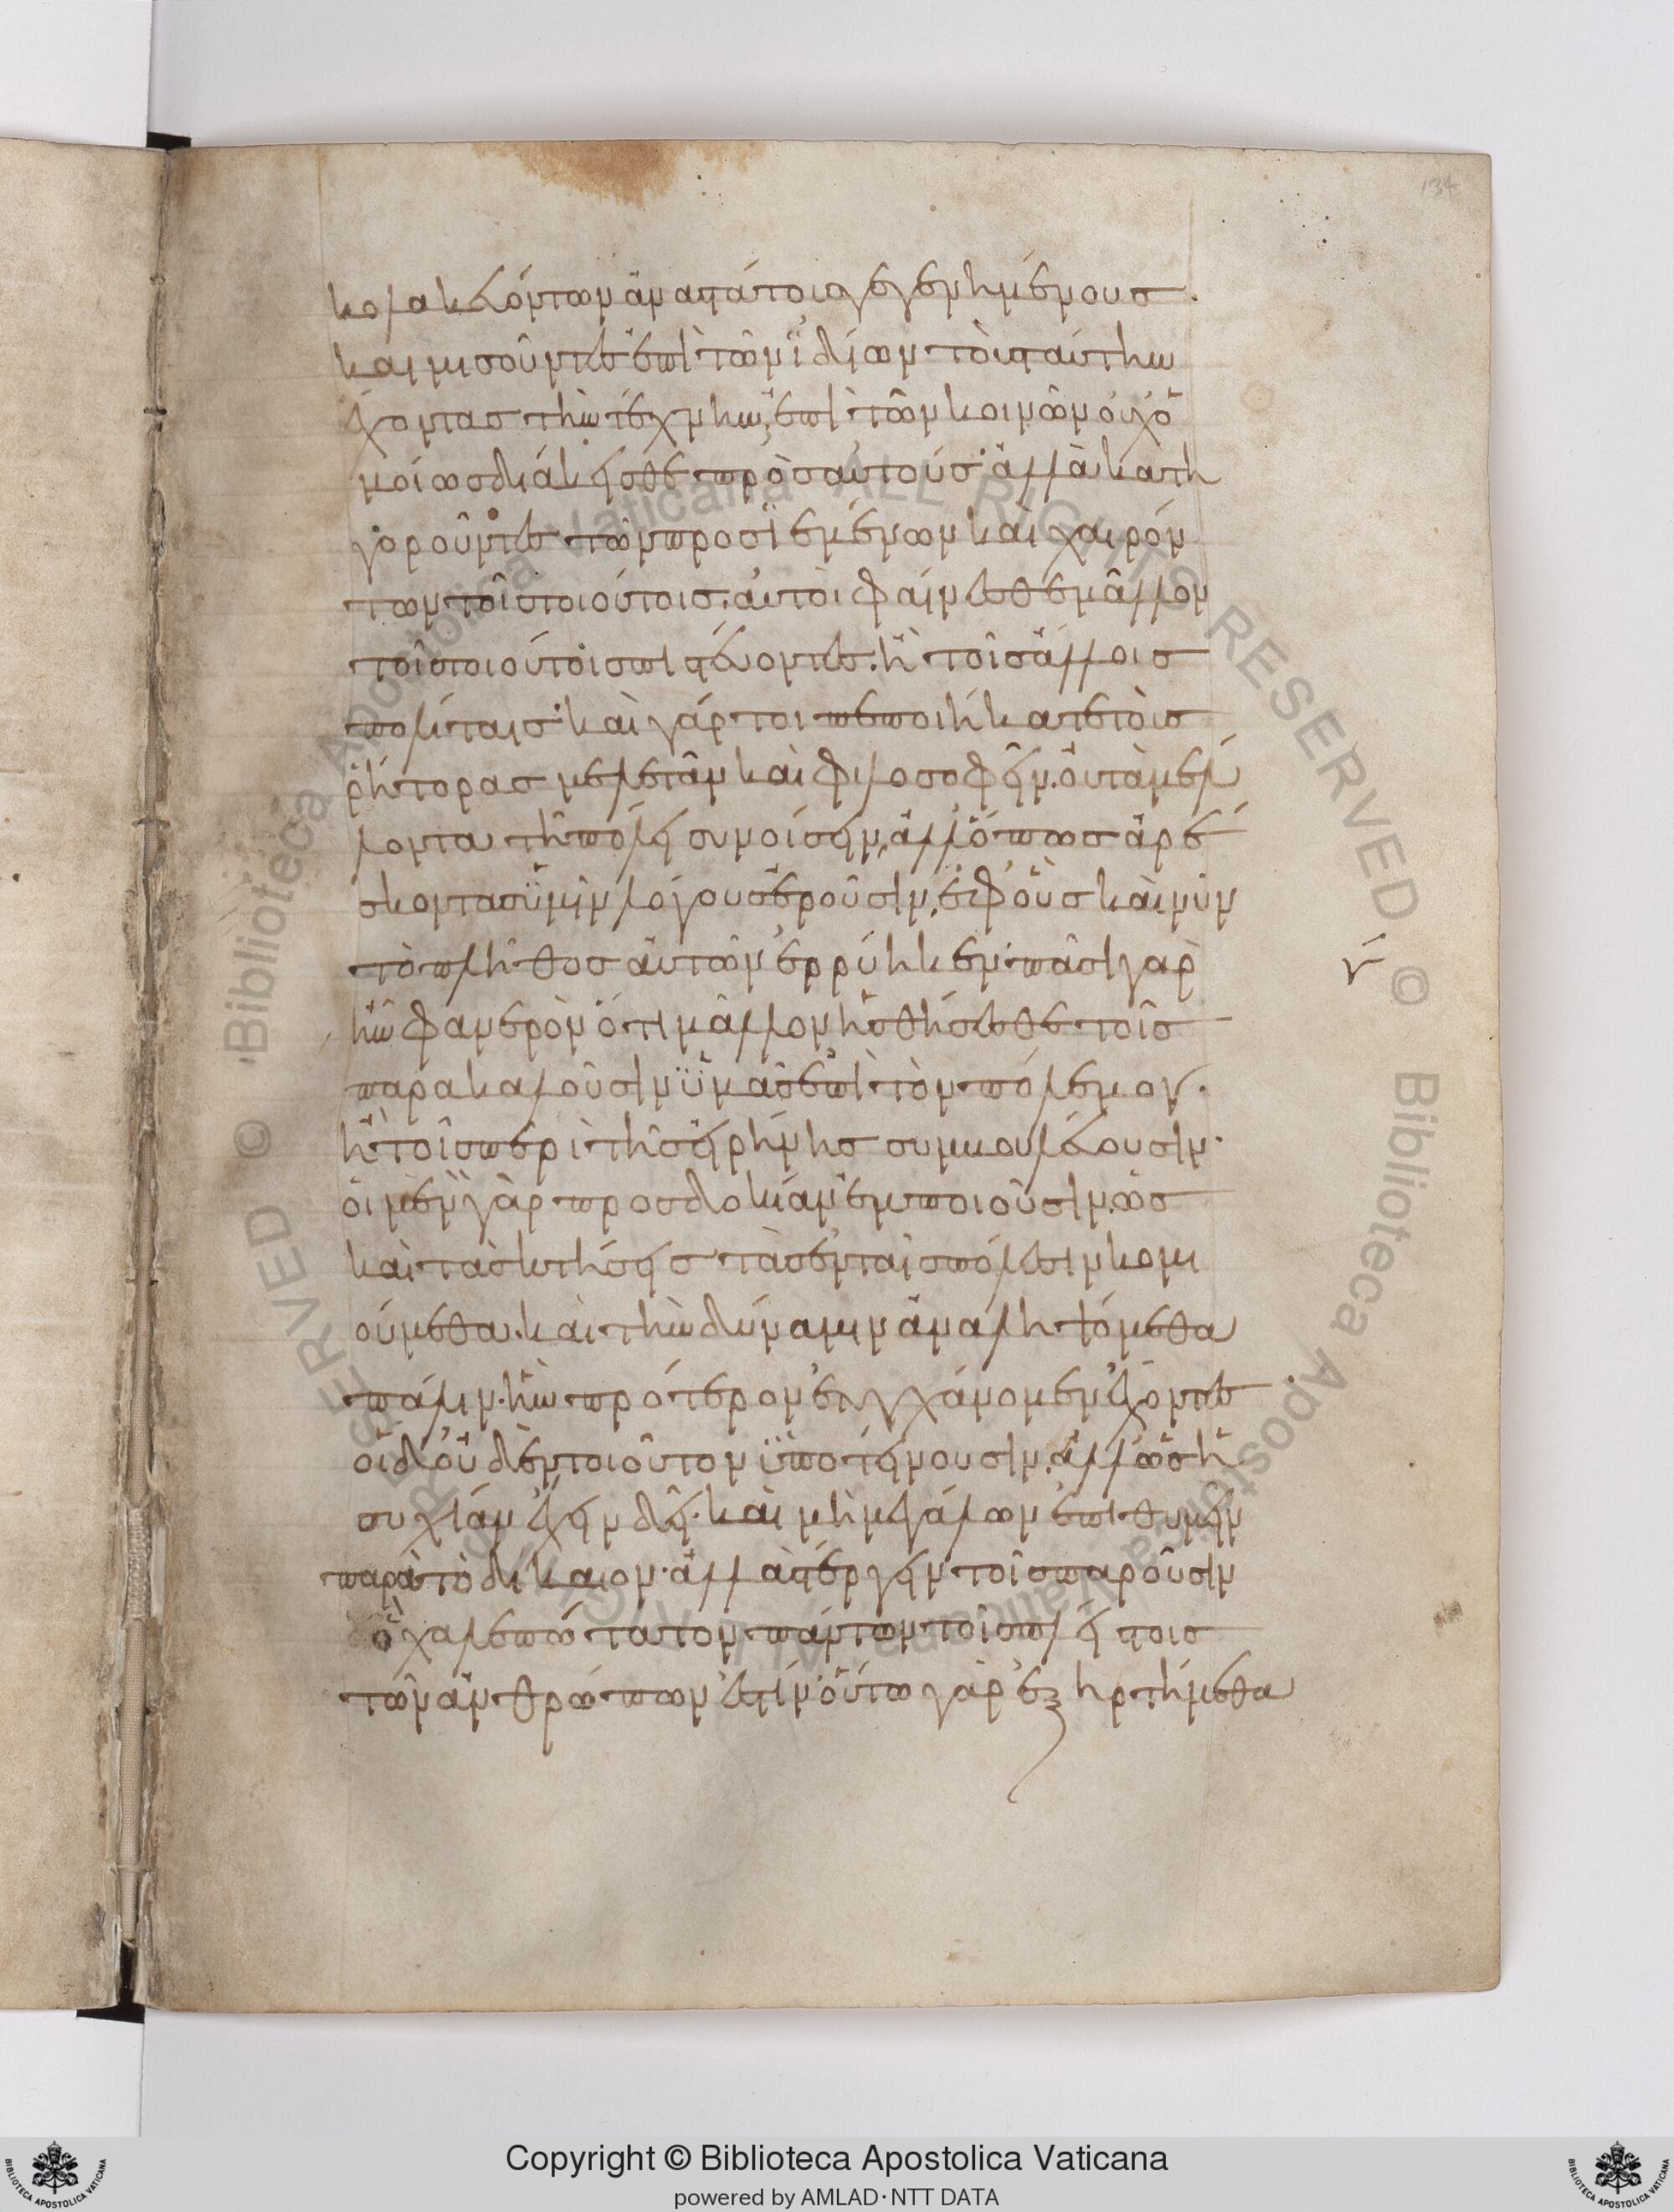 134
κολακευόντων ἀναστάτους γεγενημένους.
καὶ μισοῦντες ἐπὶ τῶν ἰδίων τοὺς ταύτην
ἔχοντας τὴν τέχνην, ἐπὶ τῶν κοινῶν οὐχ ὁ
μοίως διάκεισθε πρὸς αὐτούς· ἀλλὰ κατη
γοροῦντες τῶν προσϊεμένων καὶ χαιρόν
των τοῖς τοιούτοις· αὐτοὶ φαίνεσθε μᾶλλον
τοῖς τοιούτοις πιστεύοντες· ἢ τοῖς ἄλλοις
πολίταις· καὶ γάρ τοι πεποιήκατε τοὺς
ῥήτορας μελετᾶν καὶ φιλοσοφεῖν· οὐ τὰ μέλ
λοντα τῇ πόλει συνοίσειν, ἀλλ' ὅπως ἀρέ
σκοντας ὑμῖν λόγους ἐροῦσιν, ἐφ' οὓς καὶ νῦν
τὸ πλῆθος αὐτῶν ἐρρύηκεν· πᾶσι γὰρ
ἦν φανερὸν ὅτι μᾶλλον ἡσθήσεσθε τοῖς
παρακαλοῦσιν ὑμᾶς ἐπὶ τὸν πόλεμον.
ἢ τοῖς περὶ τῆς εἰρήνης συμβουλεύουσιν·
οἱ μὲν γὰρ προσδοκίαν ἐμποιοῦσιν, ὡς
καὶ τὰς κτήσεις τὰς ἐν ταῖς πόλεσιν κομι
ούμεθα· καὶ τὴν δύναμιν ἀναληψόμεθα
πάλιν· ἣν πρότερον ἐτυγχάνομεν ἔχοντες
οἱ δ' οὐδὲν τοιοῦτον ὑποτείνουσιν, ἀλλ' ὡς ἡ
συχίαν ἔχειν δεῖ· καὶ μὴ μεγάλων ἐπιθυμεῖν
παρὰ τὸ δίκαιον· ἀλλὰ στέργειν τοῖς παροῦσιν
ὃ χαλεπώτατον πάντων τοῖς πλείστοις
τῶν ἀνθρώπων ἐστίν· οὕτω γὰρ ἐξηρτήμεθα
Copyright © Biblioteca Apostolica Vaticana
powered by AMLAD·NTT DATA